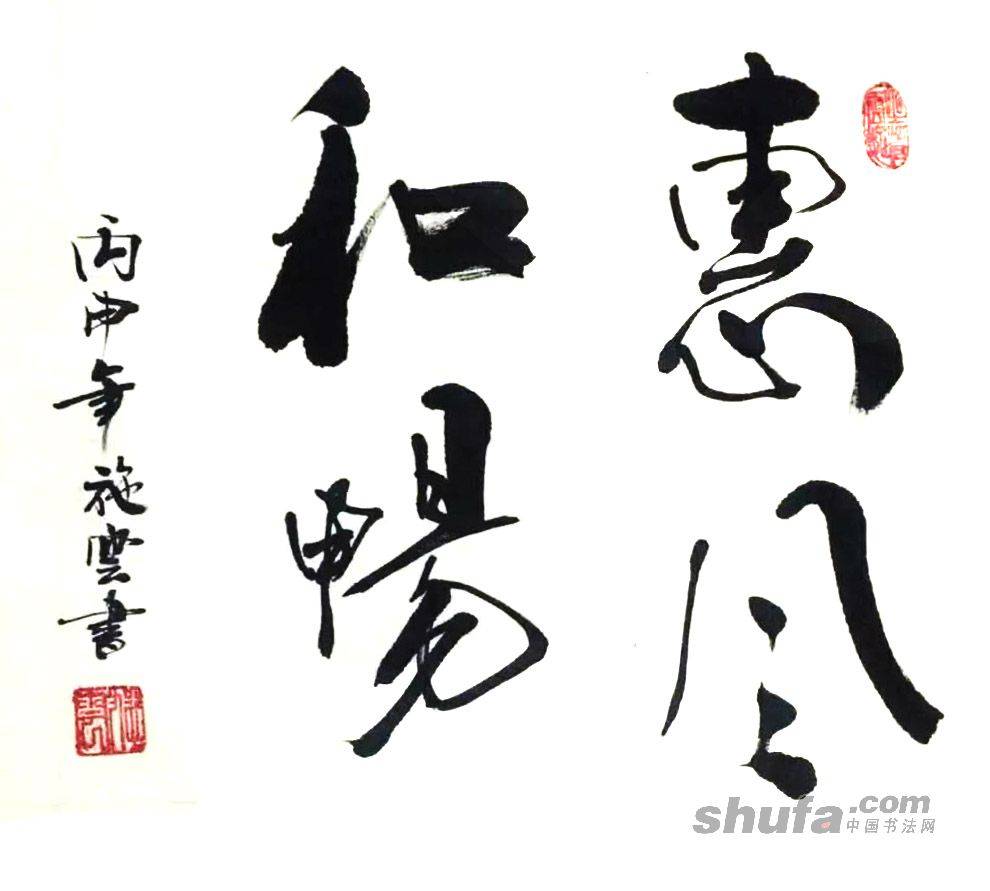 惠风
和暢
丙申年施雲書
shufa.com
中国书法网